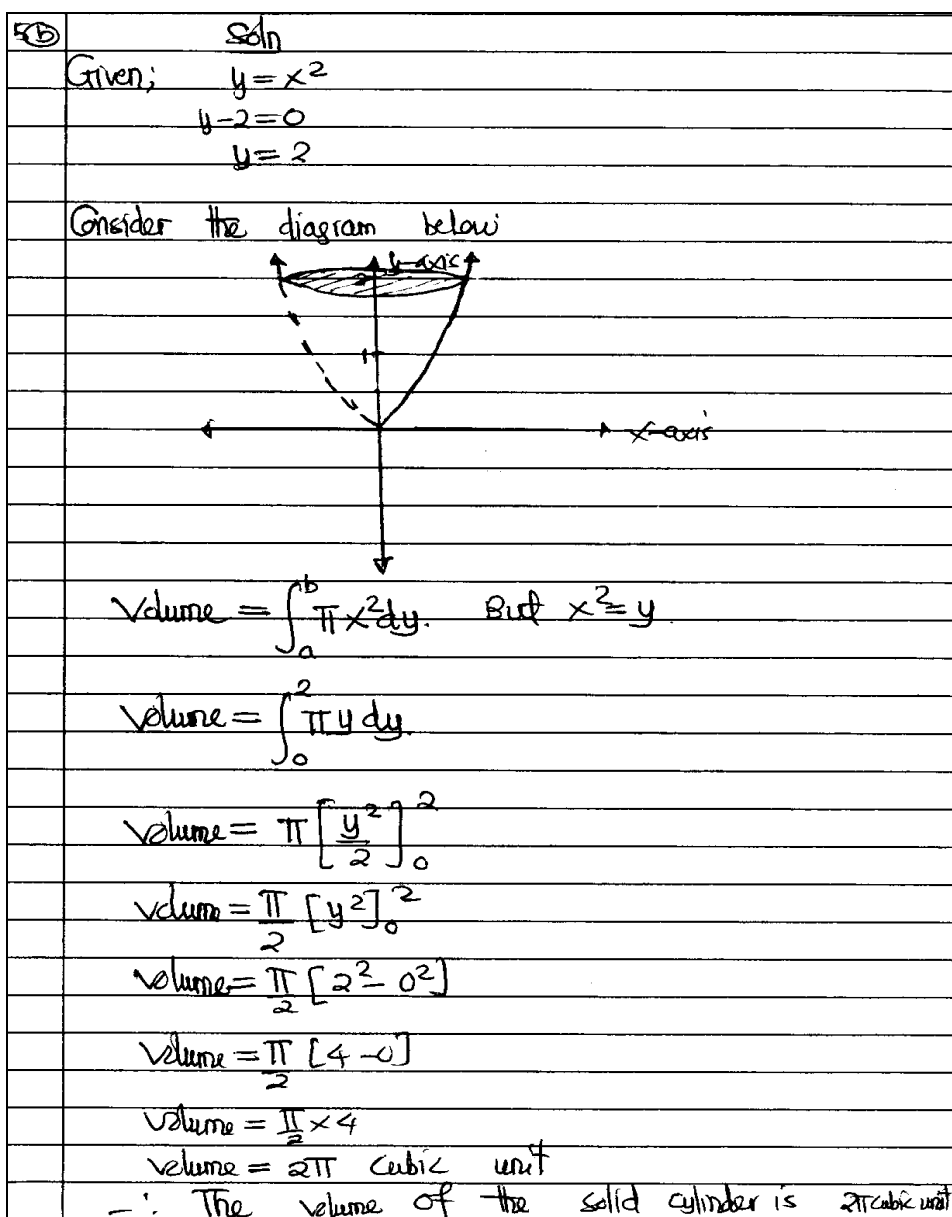 5(b) Soln
Given; y = x²
y-2=0
y= 2
Consider the diagram below
y-axis
2
1
x-axis
Volume = ∫ₐᵇ πx²dy. But x²=y
Volume = ∫₀² πy dy.
Volume = π [y²/2]₀²
Volume = π/2 [y²]₀²
Volume = π/2 [2² - 0²]
Volume = π/2 [4 - 0]
Volume = π/2 × 4
Volume = 2π cubic unit
∴ The volume of the solid cylinder is 2π cubic unit